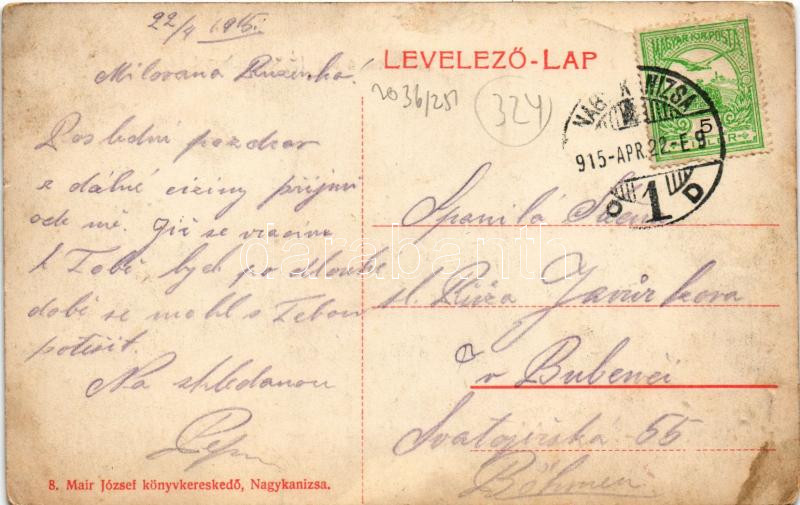 22/4 1915.
Milovaná Růženko!
Poslední pozdrav
z dálné ciziny přijmi
ode mě. Již se vracím
k Tobě, bych po dlouhé
době se mohl s Tebou
potěšit.
Na shledanou
Pepa
8. Mair József könyvkereskedő, Nagykanizsa.
LEVELEZŐ-LAP
2036/251
324
MAGYAR KIR. POSTA
5
NAGYKANIZSA
915-APR.22-E.9
1 D
Spanilá
sl. Růža Javůrkova
v Bubenči
Svatojirská 55
Böhmen
darabanth